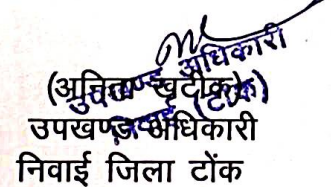 उपखण्ड अधिकारी
(टोंक)
खटीक)
उपखण्ड अधिकारी
निवाई जिला टोंक